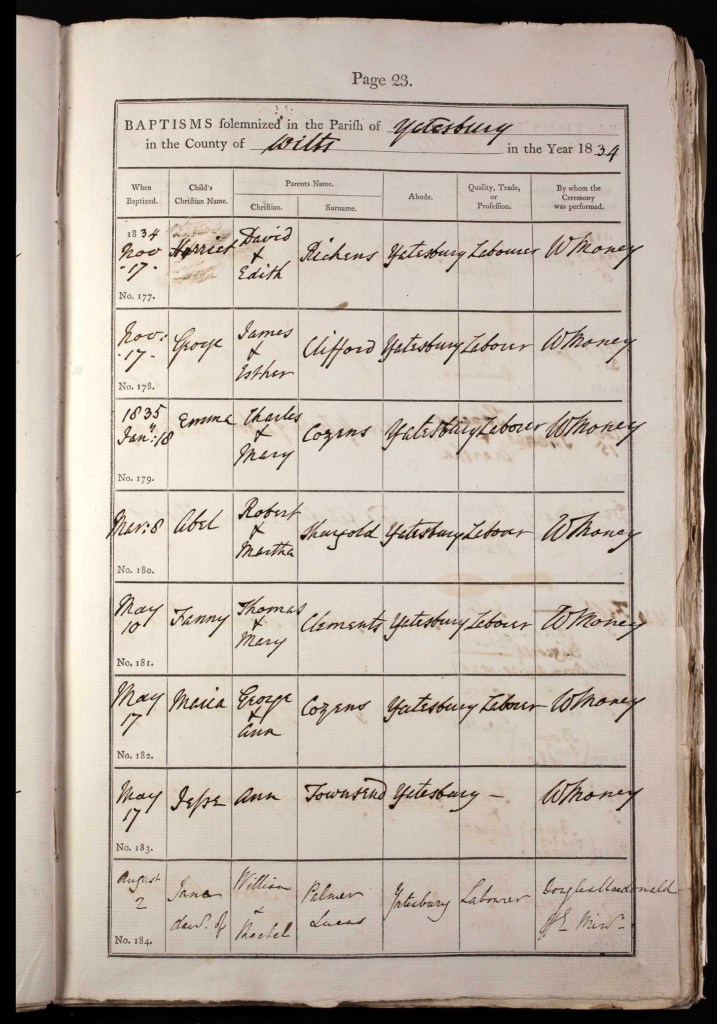 Page 23.
BAPTISMS solemnized in the Parish of Yatesbury
in the County of Wilts in the Year 1834
When Baptized. Child's Christian Name. Parents Name. Abode. Quality, Trade, or Profession. By whom the Ceremony was performed.
Christian. Surname.
1834
Nov 17. Harriet David & Edith Richens Yatesbury Labourer W Money
No. 177.
Nov: 17. George James & Esther Clifford Yatesbury Labourer W Money
No. 178.
1835
Jany: 18 Emma Charles & Mary Cozens Yatesbury Labourer W Money
No. 179.
Mar: 8 Abel Robert & Martha Yatesbury Labour W Money
No. 180.
May 10 Fanny Thomas & Mary Clements Yatesbury Labourer W Money
No. 181.
May 17 Maria George & Ann Cozens Yatesbury Labourer W Money
No. 182.
May 17 Jesse Ann Townsend Yatesbury — W Money
No. 183.
August 2 Jane daur. of William & Rachel Palmer Lucas Yatesbury Labourer Douglas Macdonald
No. 184.